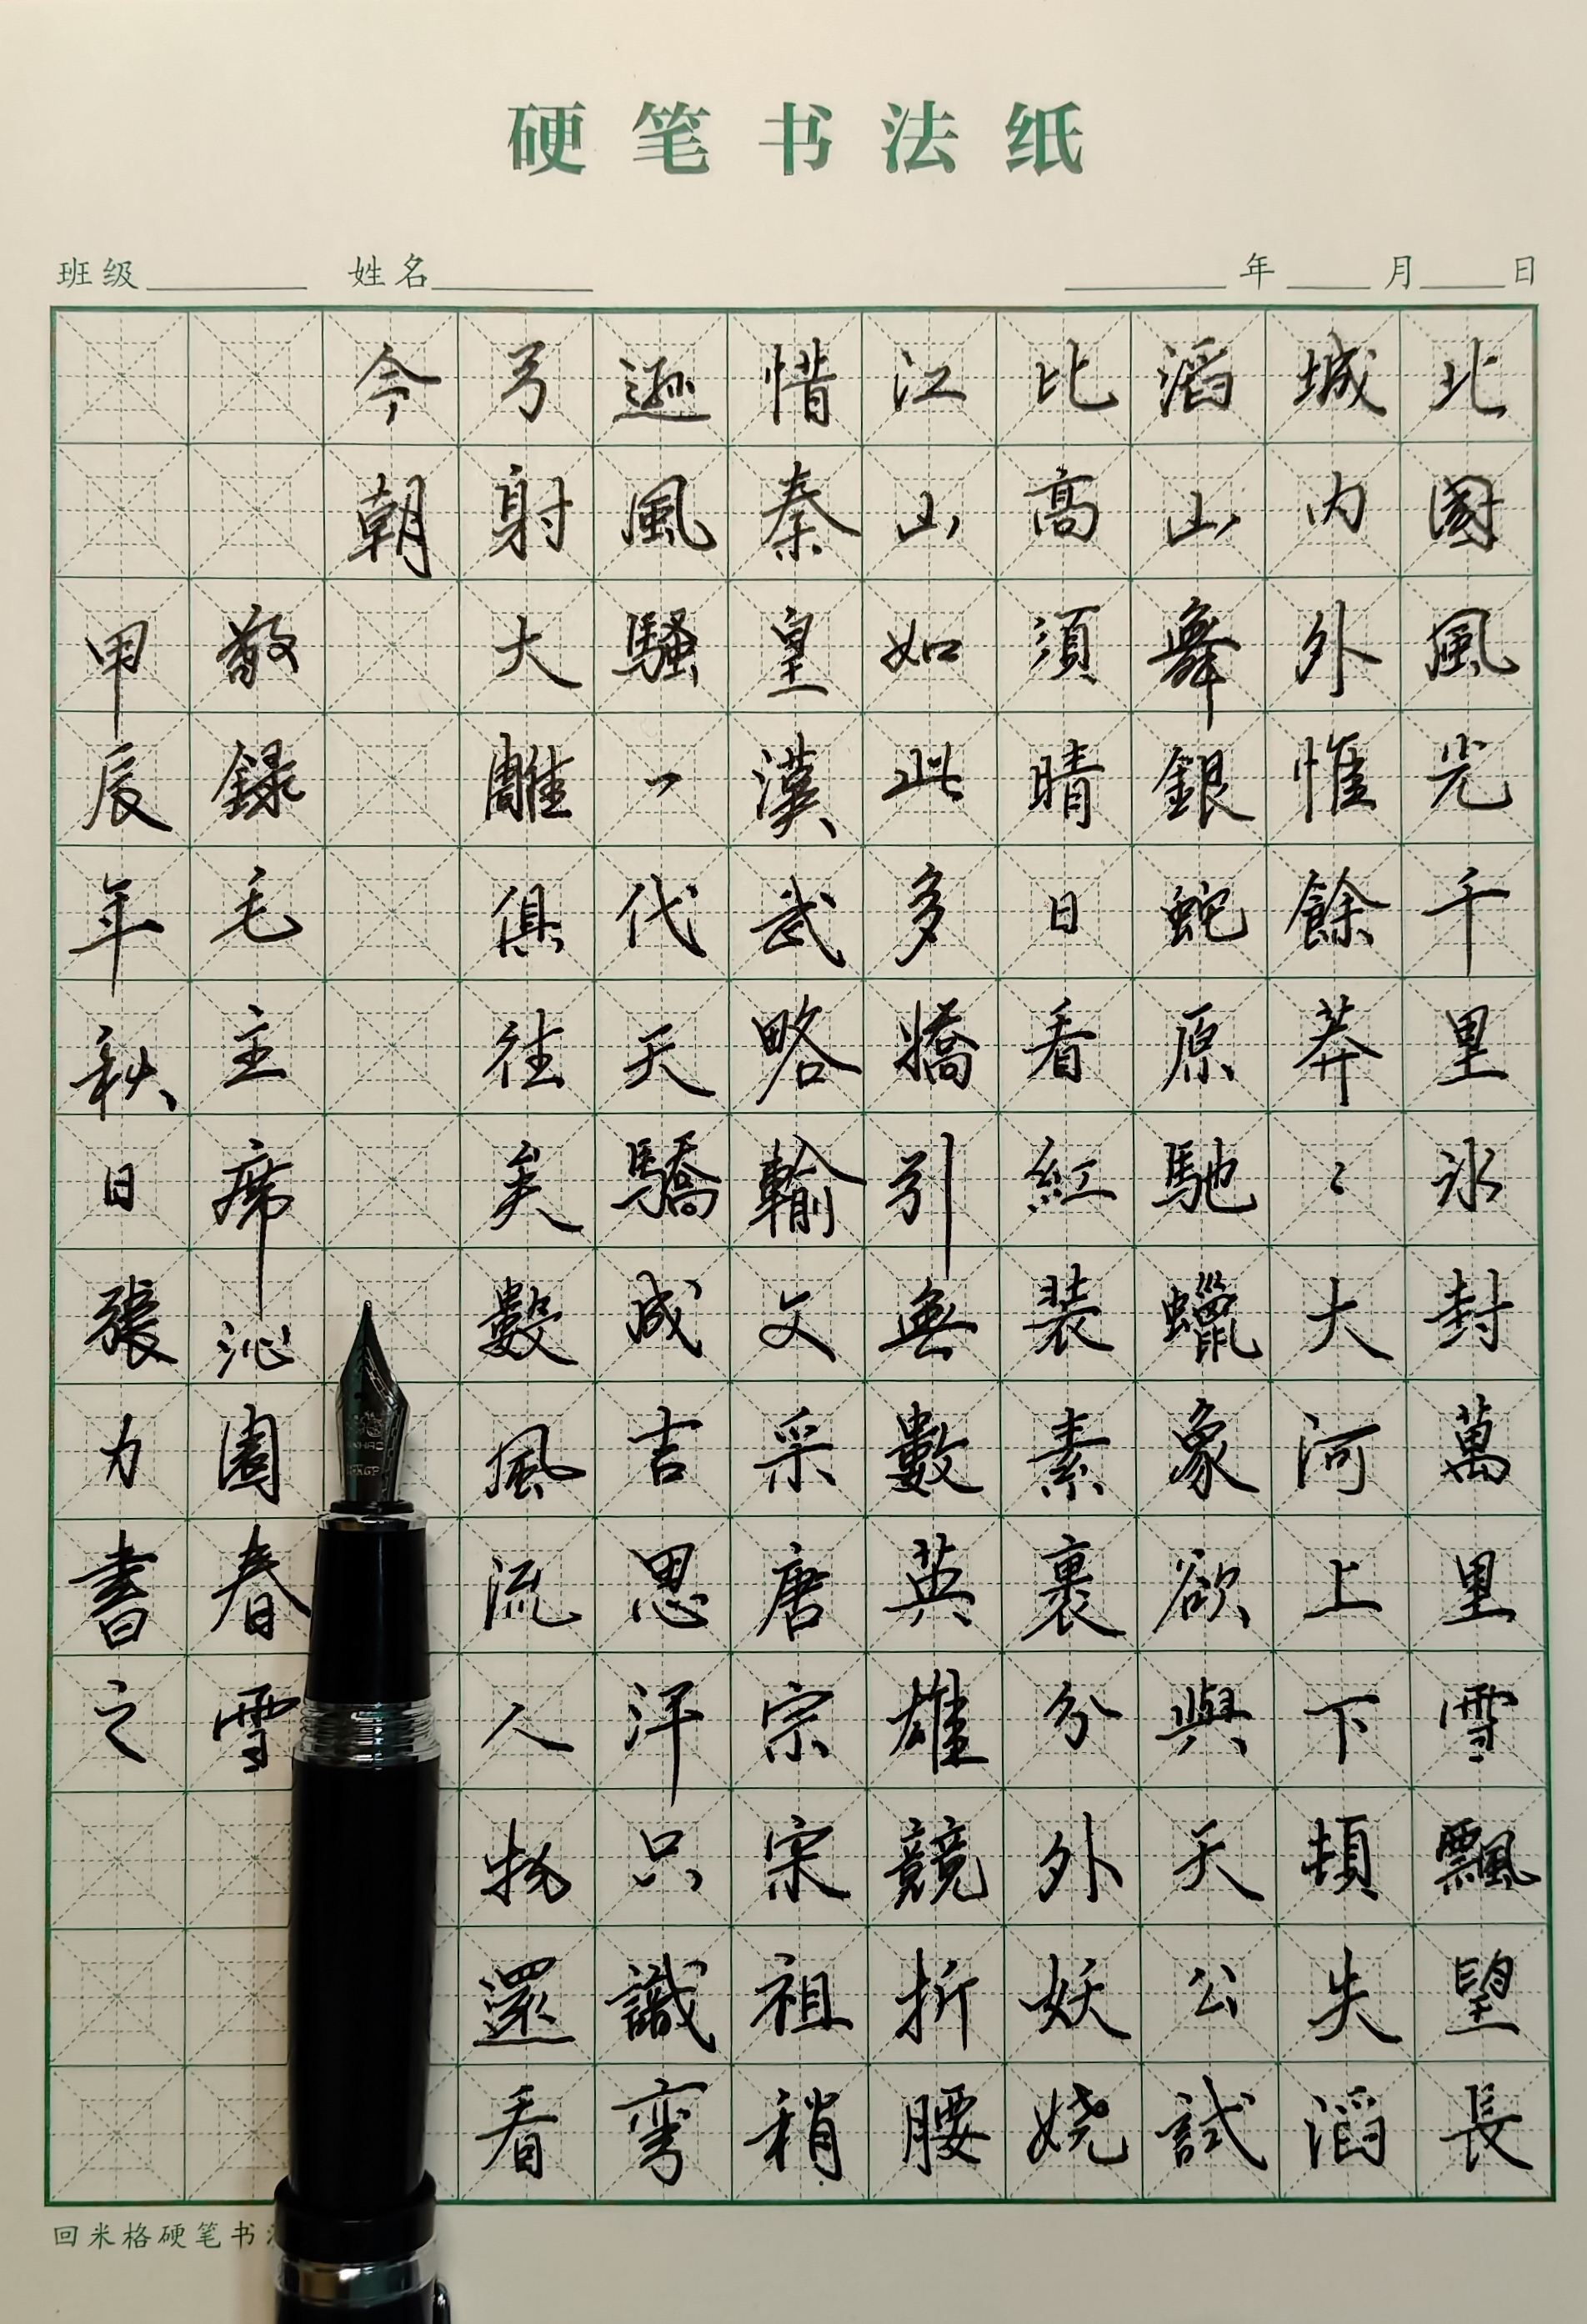 硬笔书法纸
班级 姓名 年 月 日
北國風光千里冰封萬里雪飄望長
城内外惟餘莽〻大河上下頓失滔
滔山舞銀蛇原馳蠟象欲與天公試
比高須晴日看紅装素裹分外妖娆
江山如此多嬌引無數英雄競折腰
惜秦皇漢武略輸文采唐宗宋祖稍
遜風騷一代天驕成吉思汗只識弯
弓射大雕俱往矣數風流人物還看
今朝
敬録毛主席沁園春雪
甲辰年秋日張力書之
回米格硬笔书